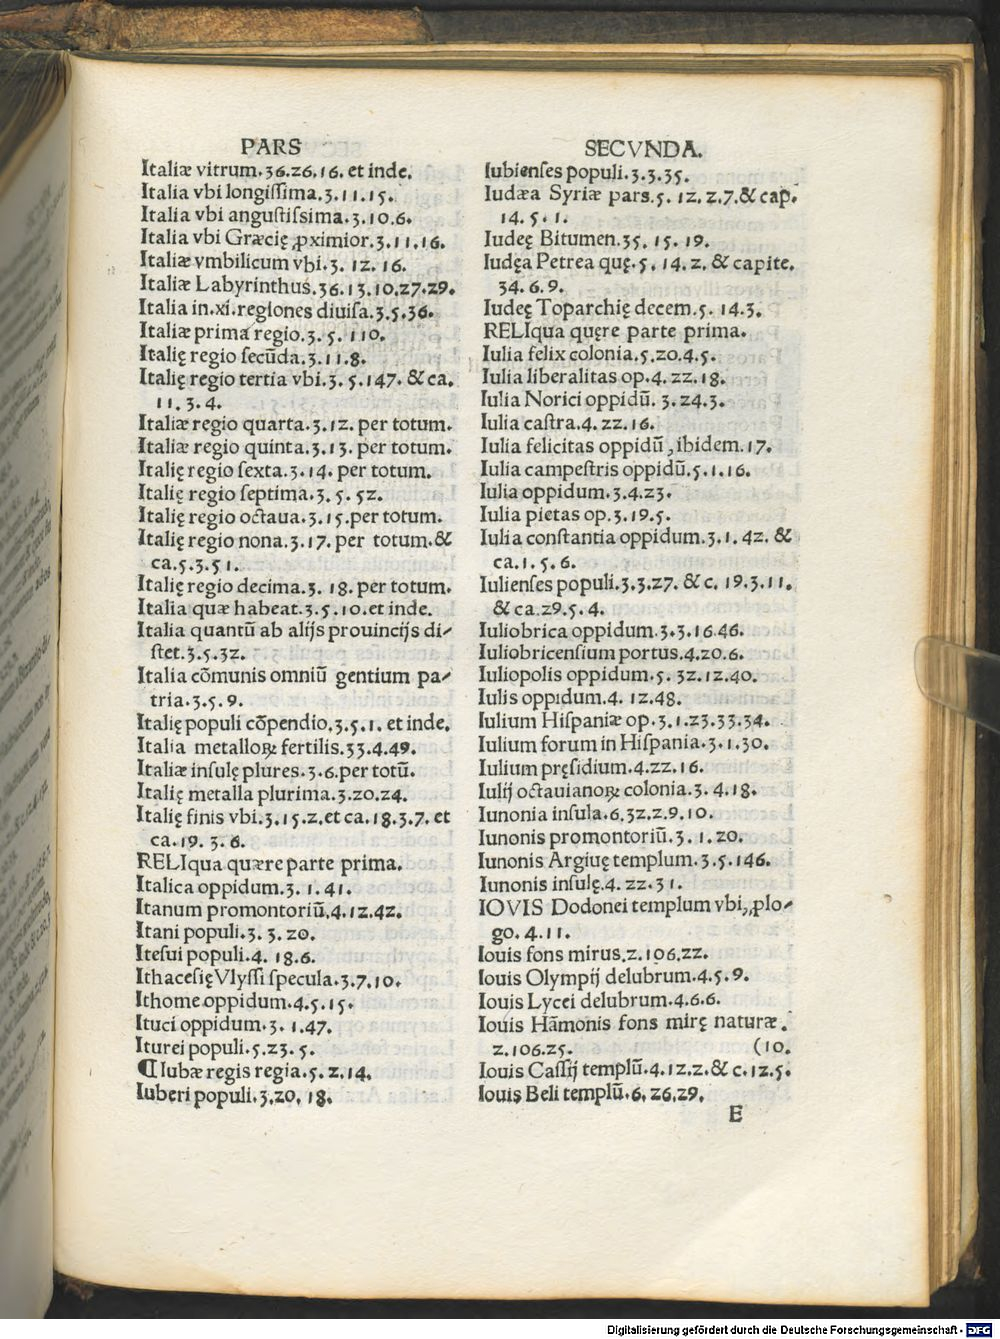 PARS
Italiæ vitrum.36.26.16. et inde.
Italia vbi longissima.3.11.15.
Italia vbi angustissima.3.10.6.
Italia vbi Græcię ꝓximior.3.11.16.
Italiæ vmbilicum vbi.3. 12. 16.
Italiæ Labyrinthus.36.13.10.27.29.
Italia in.xi.regiones diuisa.3.5.36.
Italiæ prima regio.3. 5. 110.
Italię regio secūda.3.11.8.
Italię regio tertia vbi.3. 5.147. & ca.
11. 3. 4.
Italiæ regio quarta.3.12. per totum.
Italiæ regio quinta.3.13. per totum.
Italię regio sexta.3.14. per totum.
Italię regio septima.3. 5. 52.
Italię regio octaua.3.15.per totum.
Italię regio nona.3.17. per totum.&
ca.5.3.51.
Italię regio decima.3. 18. per totum.
Italia quæ habeat.3.5.10.et inde.
Italia quantū ab alijs prouincijs di⸗
stet.3.5.32.
Italia cōmunis omniū gentium pa⸗
tria.3.5.9.
Italię populi cōpendio.3.5.1. et inde.
Italia metalloꝝ fertilis.33.4.49.
Italiæ insulę plures.3.6.per totū.
Italię metalla plurima.3.20.24.
Italię finis vbi.3.15.2.et ca.18.3.7. et
ca.19. 3. 6.
RELIqua quære parte prima.
Italica oppidum.3. 1. 41.
Itanum promontoriū.4.12.42.
Itani populi.3. 3. 20.
Itesui populi.4. 18.6.
Ithacesię Vlyssi specula.3.7.10.
Ithome oppidum.4.5.15.
Ituci oppidum.3. 1.47.
Iturei populi.5.23. 5.
¶ Iubæ regis regia.5. 2.14.
Iuberi populi.3.20. 18.
SECVNDA.
Iubienses populi.3.3.35.
Iudæa Syriæ pars.5. 12. 2.7.& cap.
14. 5. 1.
Iudeę Bitumen.35. 15. 19.
Iudęa Petrea quę.5. 14.2. & capite.
34.6.9.
Iudeę Toparchię decem.5. 14.3.
RELIqua quęre parte prima.
Iulia felix colonia.5.20.4.5.
Iulia liberalitas op.4. 22. 18.
Iulia Norici oppidū. 3. 24.3.
Iulia castra.4. 22. 16.
Iulia felicitas oppidū, ibidem.17.
Iulia campestris oppidū.5.1.16.
Iulia oppidum.3.4.23.
Iulia pietas op.3.19.5.
Iulia constantia oppidum.3.1. 42. &
ca.1. 5. 6.
Iulienses populi.3.3.27. & c. 19.3.11.
& ca.29.5. 4.
Iuliobrica oppidum.3.3.16.46.
Iuliobricensium portus.4.20.6.
Iuliopolis oppidum.5. 32.12.40.
Iulis oppidum.4. 12.48.
Iulium Hispaniæ op.3.1.23.33.34.
Iulium forum in Hispania.3.1.30.
Iulium pręsidium.4.22.16.
Iulij octauianoꝝ colonia.3. 4.18.
Iunonia insula.6.32.2.9.10.
Iunonis promontoriū.3. 1.20.
Iunonis Argiuę templum.3.5.146.
Iunonis insulę.4. 22.31.
IOVIS Dodonei templum vbi, ꝓlo⸗
go. 4.11.
Iouis fons mirus.2.106.22.
Iouis Olympij delubrum.4.5.9.
Iouis Lycei delubrum.4.6.6.
Iouis Hāmonis fons mirę naturæ.
2.106.25. (10.
Iouis Cassij templū.4.12.2.& c.12.5.
Iouis Beli templū.6. 26.29.
E
Digitalisierung gefördert durch die Deutsche Forschungsgemeinschaft - DFG